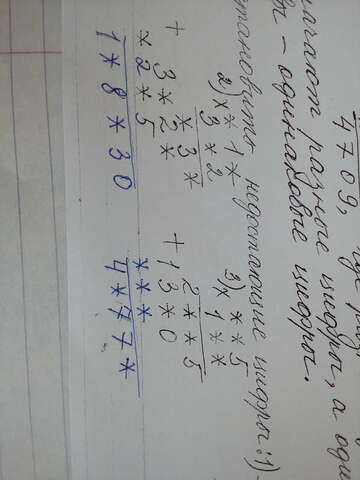 4709, где раз
лачают разные цифры, а оди
вы – одинаковые цифры.
становить недостающие цифры: 1)
2) × * 1 * 3) × * * 5
3 * 2 1 * *
* 3 * 2 * * 5
+ 3 * 2 * + 1 3 * 0
* 2 * 5 * * *
1 * 8 * 3 0 4 * 7 7 *